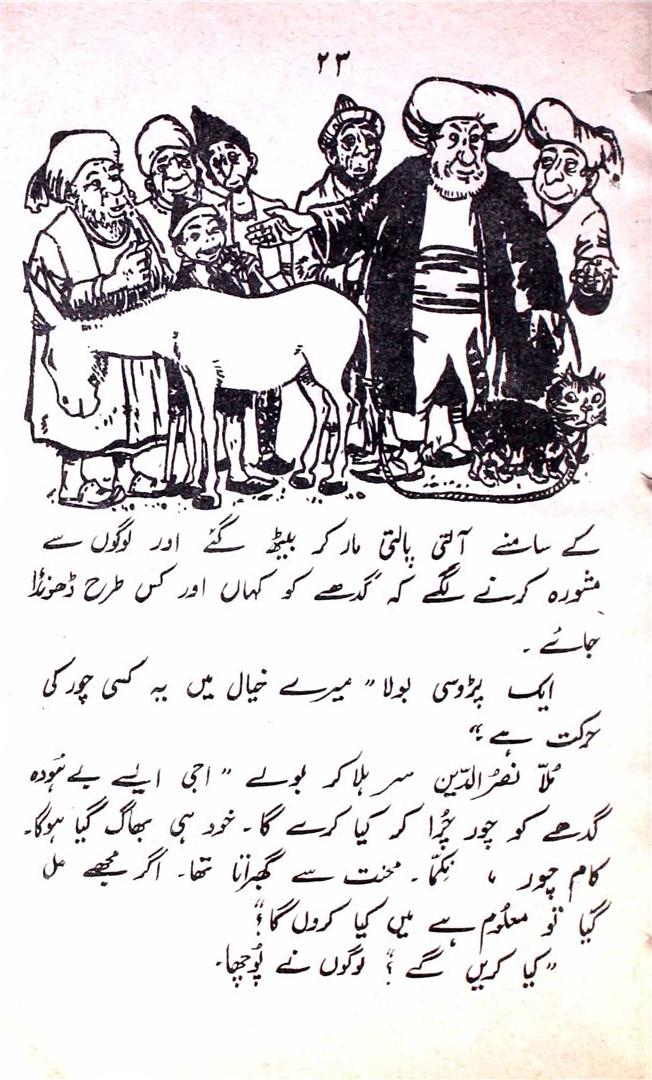 ۲۳
کے سامنے آلتی پالتی مار کر بیٹھ گئے اور لوگوں سے
مشورہ کرنے لگے کہ گدھے کو کہاں اور کس طرح ڈھونڈا
جائے ۔
ایک پڑوسی بولا " میرے خیال میں یہ کسی چور کی
حرکت ہے "
مُلّا نصرُالدّین سر ہلا کر بولے " اجی ایسے بے ہُودہ
گدھے کو چور چُرا کر کیا کرے گا ۔ خود ہی بھاگ گیا ہوگا۔
کام چور ، نِکمّا ۔ محنت سے گھبراتا تھا۔ اگر مجھے مل
گیا تو معلُوم ہے میں کیا کروں گا؟"
"کیا کریں گے ؟" لوگوں نے پُوچھا۔